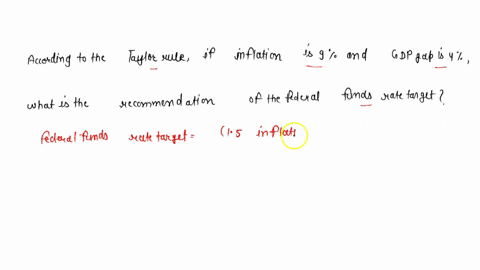 According to the Taylor rule, if inflation is 9% and GDP gap is 4%,
what is the recommendation of the federal funds rate target?
federal funds rate target = (1.5 inflati